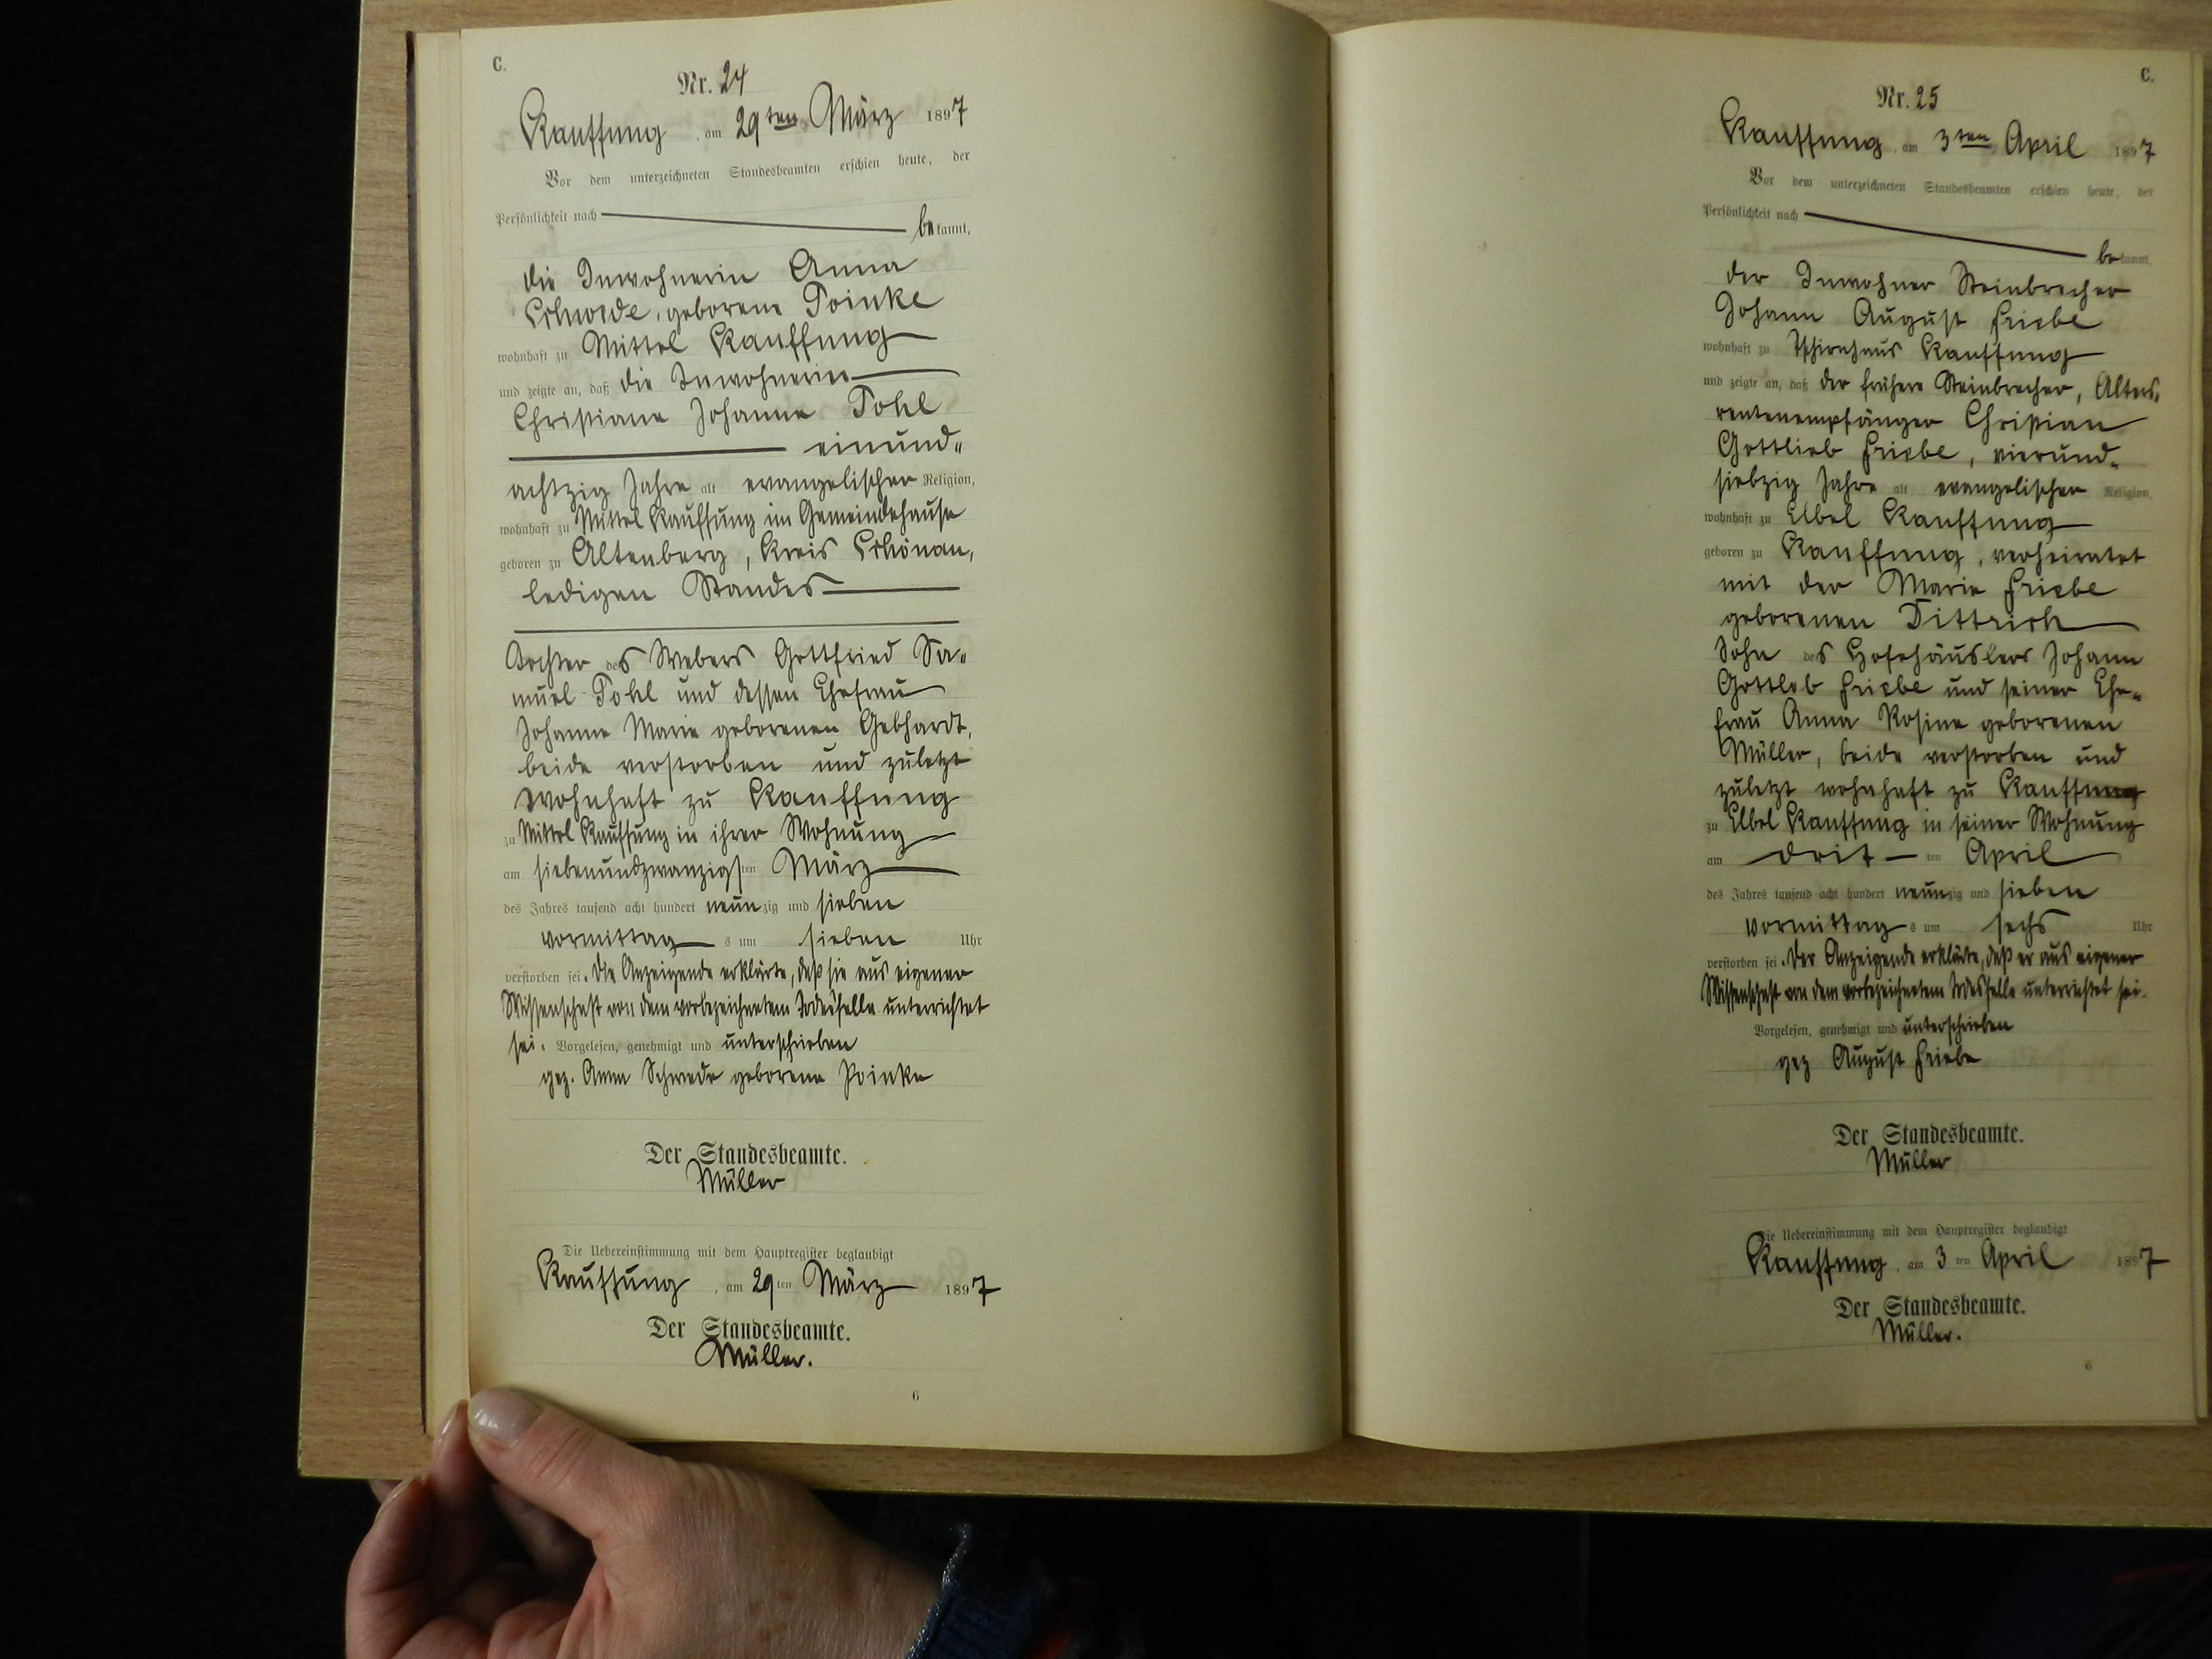 C.
Nr. 24
Kauffung, am 29ten März 1897
Vor dem unterzeichneten Standesbeamten erschien heute, der
Persönlichkeit nach
bekannt,
die Inwohnerin Anna
Schwede, geborene Poinke
wohnhaft zu Mittel Kauffung
und zeigte an, daß die Inwohnerin
Christiane Johanne Pohl
einund„
achtzig Jahre alt evangelischer Religion,
wohnhaft zu Mittel Kauffung im Gemeindehause
geboren zu Altenberg, Kreis Schönau,
ledigen Standes
Tochter des Webers Gottfried Sa„
muel Pohl und dessen Ehefrau
Johanne Marie geborenen Gebhardt,
beide verstorben und zuletzt
wohnhaft zu Kauffung
zu Mittel Kauffung in ihrer Wohnung
am siebenundzwanzigsten März
des Jahres tausend acht hundert neunzig und sieben
vormittags um sieben Uhr
verstorben sei. Die Anzeigende erklärte, daß sie aus eigener
Wissenschaft von dem vorbezeichnetem Todesfalle unterrichtet
sei. Vorgelesen, genehmigt und unterschrieben
gez. Anna Schwede geborene Poinke
Der Standesbeamte.
Müller
Die Uebereinstimmung mit dem Hauptregister beglaubigt
Kauffung, am 29ten März 1897
Der Standesbeamte.
Müller.
6
C.
Nr. 25
Kauffung, am 3ten April 1897
Vor dem unterzeichneten Standesbeamten erschien heute, der
Persönlichkeit nach
bekannt,
der Inwohner Steinbrecher
Johann August Friebe
wohnhaft zu Tschirnhaus Kauffung
und zeigte an, daß der frühere Steinbrecher, Alters„
rentenempfänger Christian
Gottlieb Friebe, vierund„
siebzig Jahre alt evangelischer Religion,
wohnhaft zu Elbel Kauffung
geboren zu Kauffung, verheiratet
mit der Marie Friebe
geborenen Dittrich
Sohn des Hofehäuslers Johann
Gottlob Friebe und seiner Ehe„
frau Anna Rosine geborenen
Müller, beide verstorben und
zuletzt wohnhaft zu Kauffung
zu Elbel Kauffung in seiner Wohnung
am dritten April
des Jahres tausend acht hundert neunzig und sieben
vormittags um sechs Uhr
verstorben sei. Der Anzeigende erklärte, daß er aus eigener
Wissenschaft von dem vorbezeichnetem Todesfalle unterrichtet sei.
Vorgelesen, genehmigt und unterschrieben
gez August Friebe
Der Standesbeamte.
Müller
Die Uebereinstimmung mit dem Hauptregister beglaubigt
Kauffung, am 3ten April 1897
Der Standesbeamte.
Müller.
6